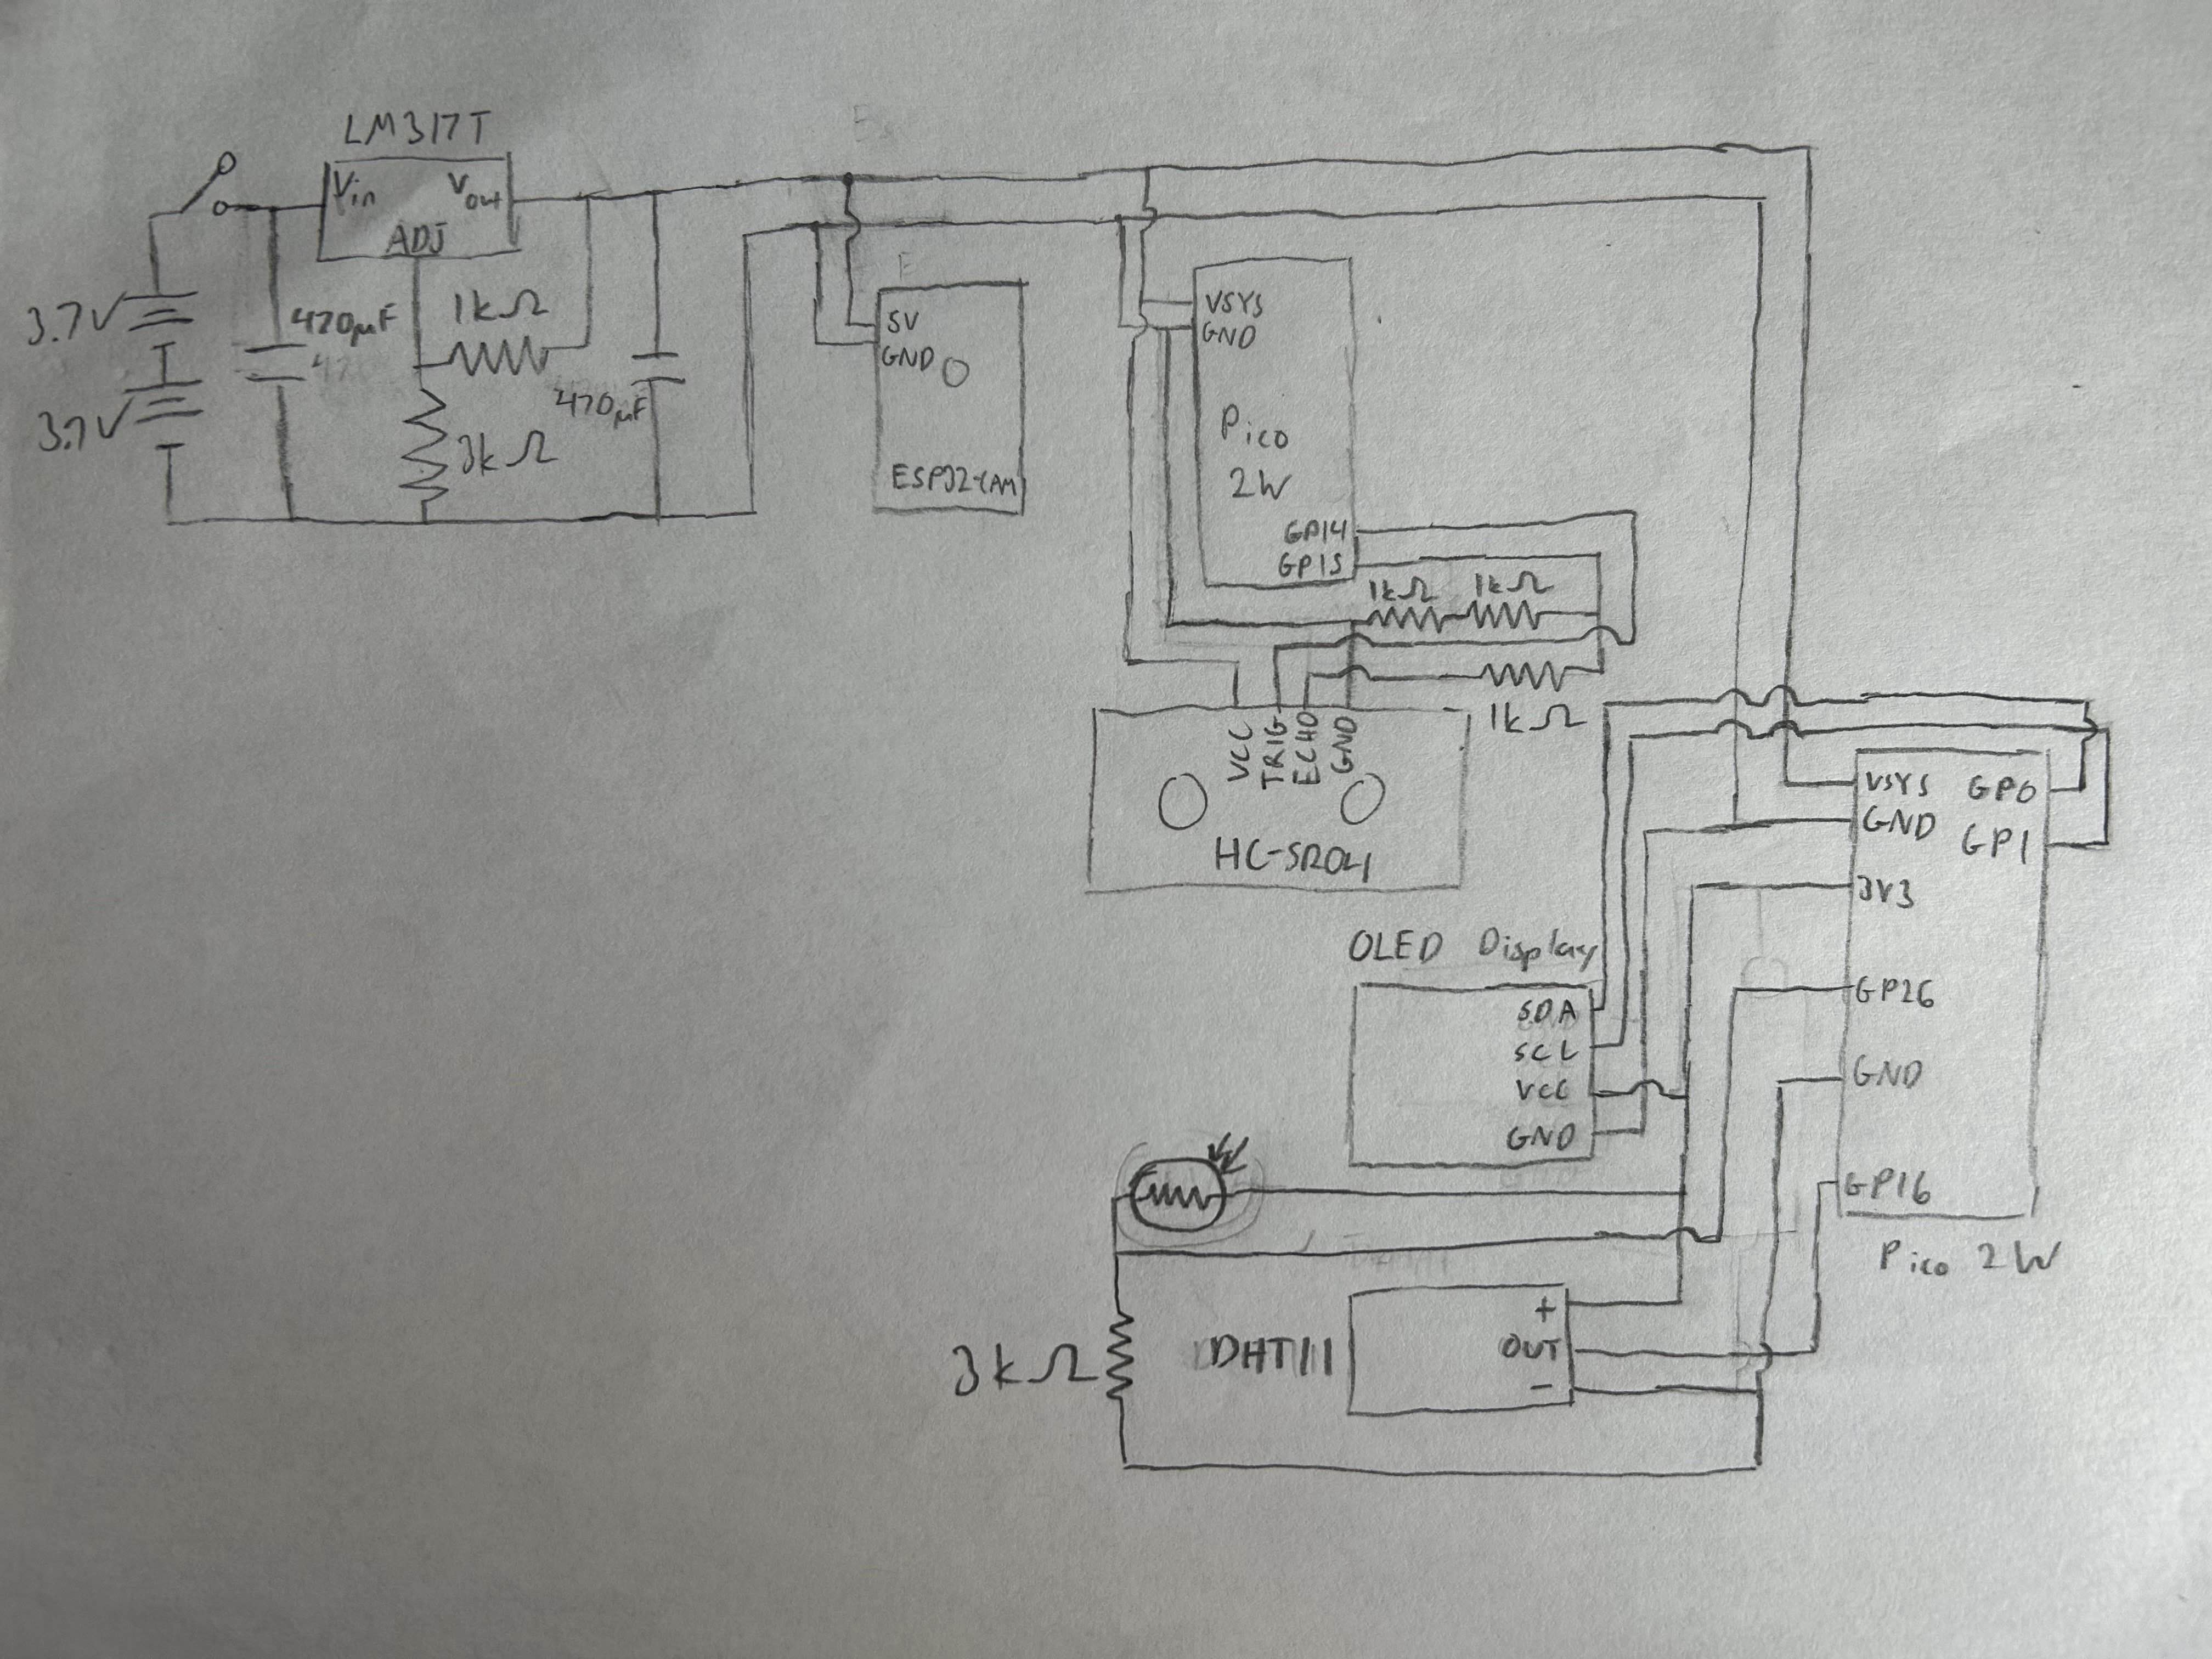 LM317T
Vin
Vout
ADJ
3.7V
470µF
1kΩ
3.7V
470µF
3kΩ
5V
GND
ESP32-CAM
VSYS
GND
Pico
2W
GP14
GP15
1kΩ 1kΩ
1kΩ
VCC
TRIG
ECHO
GND
HC-SR04
VSYS
GP0
GND
GP1
3V3
GP26
GND
GP16
Pico 2W
OLED Display
SDA
SCL
VCC
GND
3kΩ
DHT11
+
OUT
-